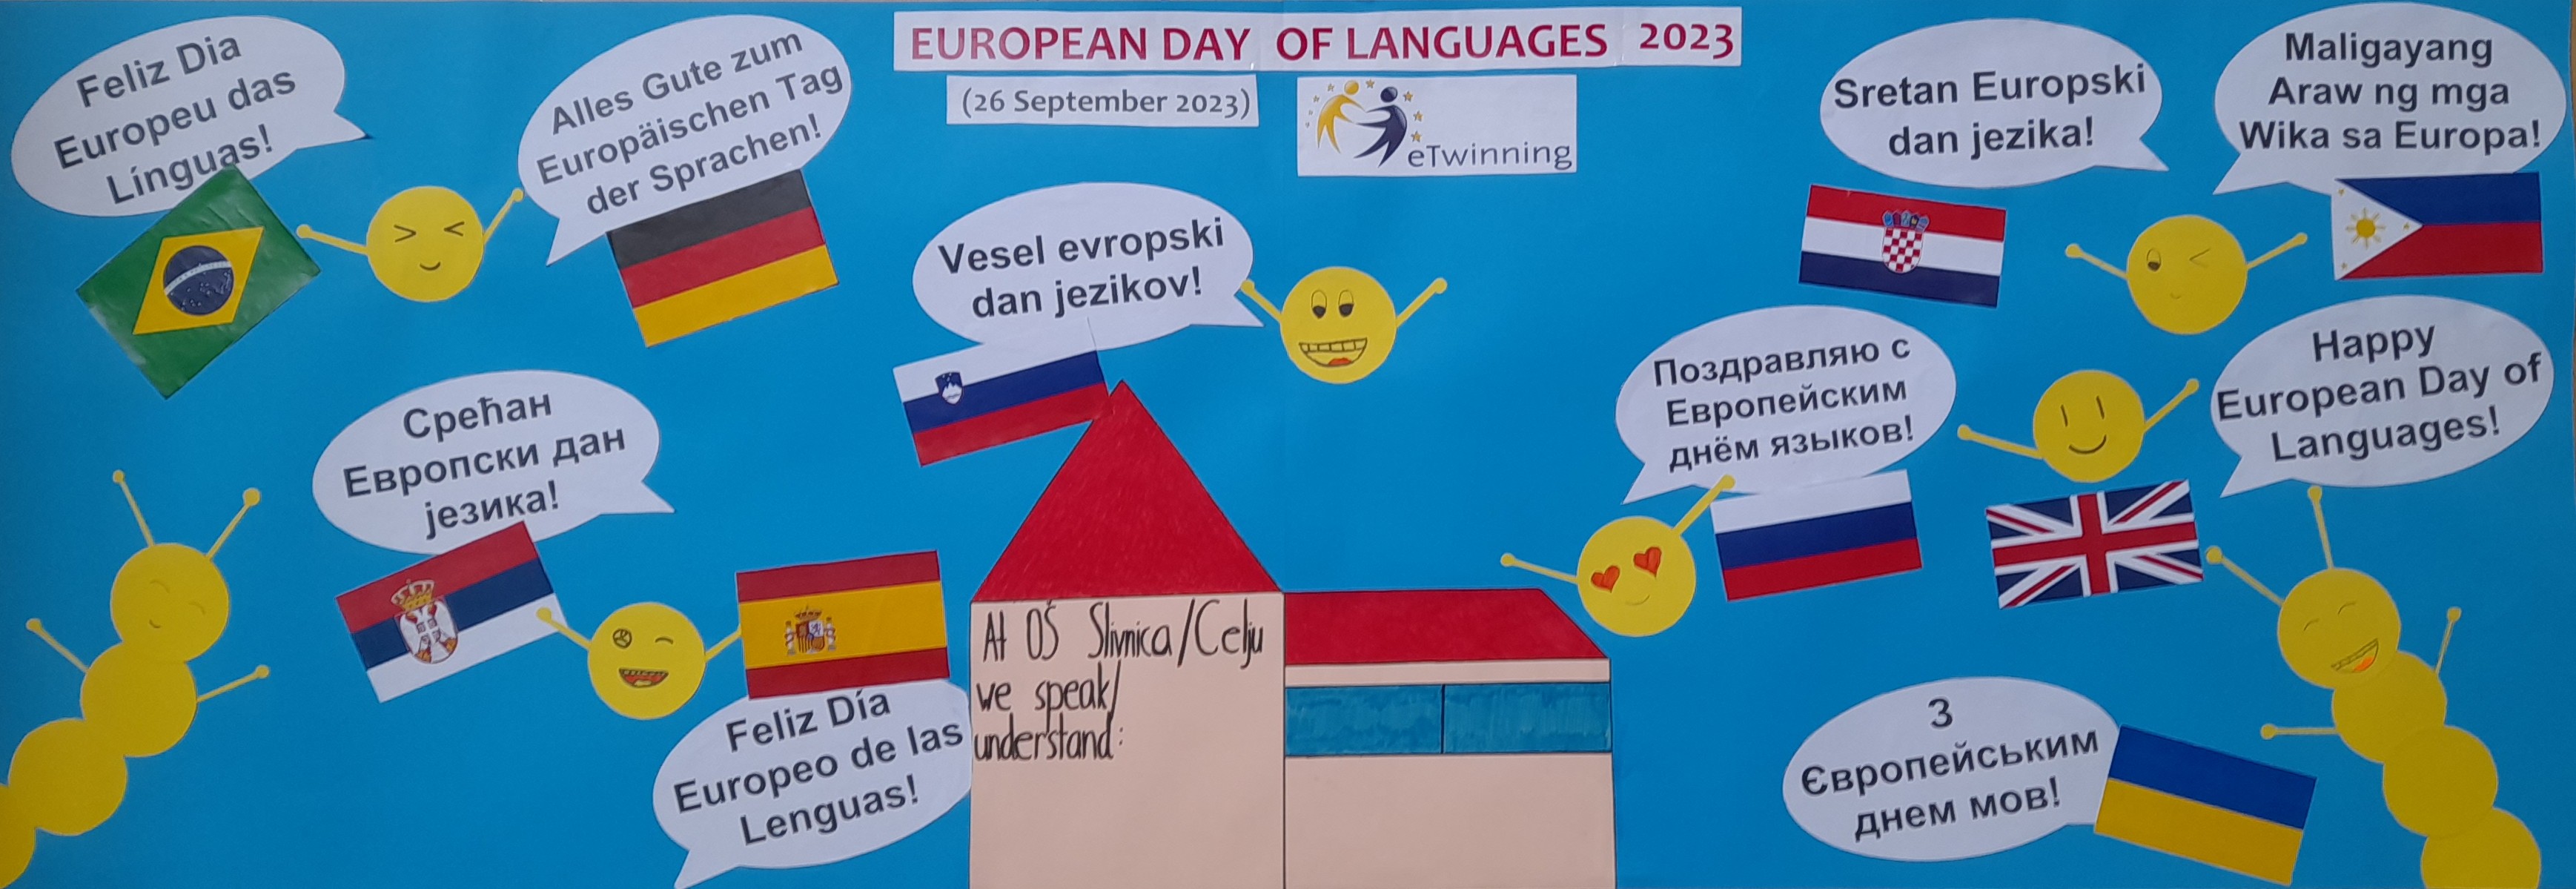 EUROPEAN DAY OF LANGUAGES 2023
(26 September 2023)
eTwinning
Feliz Dia
Europeu das
Línguas!
Alles Gute zum
Europäischen Tag
der Sprachen!
Vesel evropski
dan jezikov!
Sretan Europski
dan jezika!
Maligayang
Araw ng mga
Wika sa Europa!
Срећан
Европски дан
језика!
Поздравляю с
Европейским
днём языков!
Happy
European Day of
Languages!
Feliz Día
Europeo de las
Lenguas!
At OŠ Slivnica/Celju
we speak/
understand:
З
Європейським
днем мов!